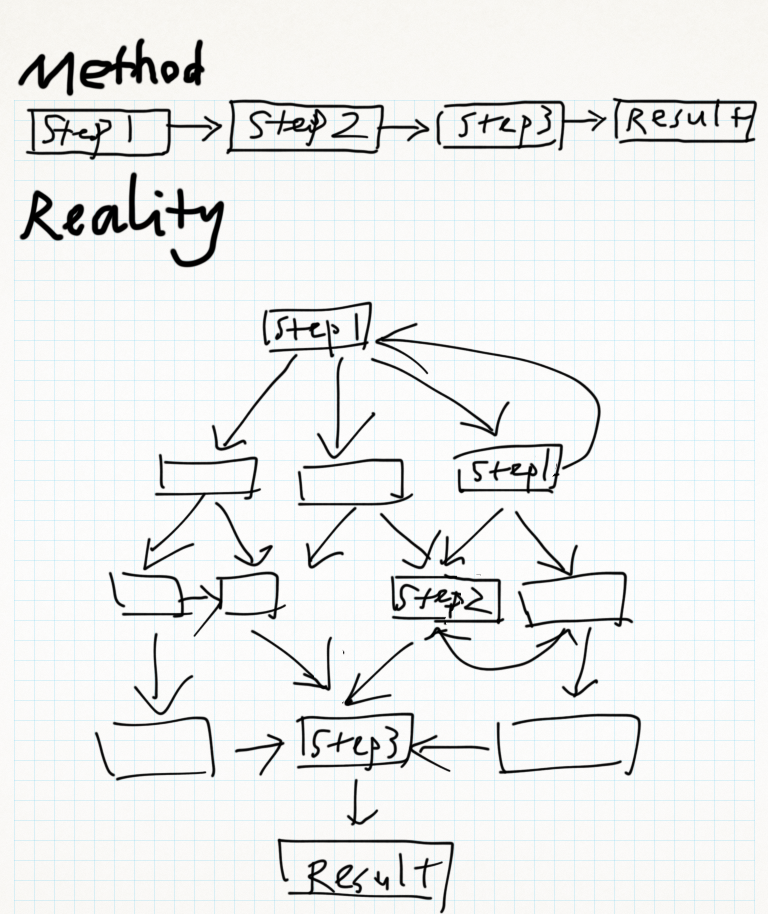 Method
Step 1 Step 2 Step3 Result
Reality
Step1
Step1
Step2
Step3
Result